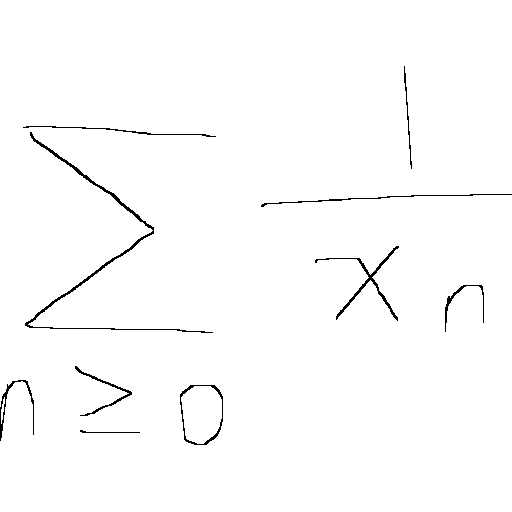 \sum_{n \geq 0} \frac{1}{x_n}